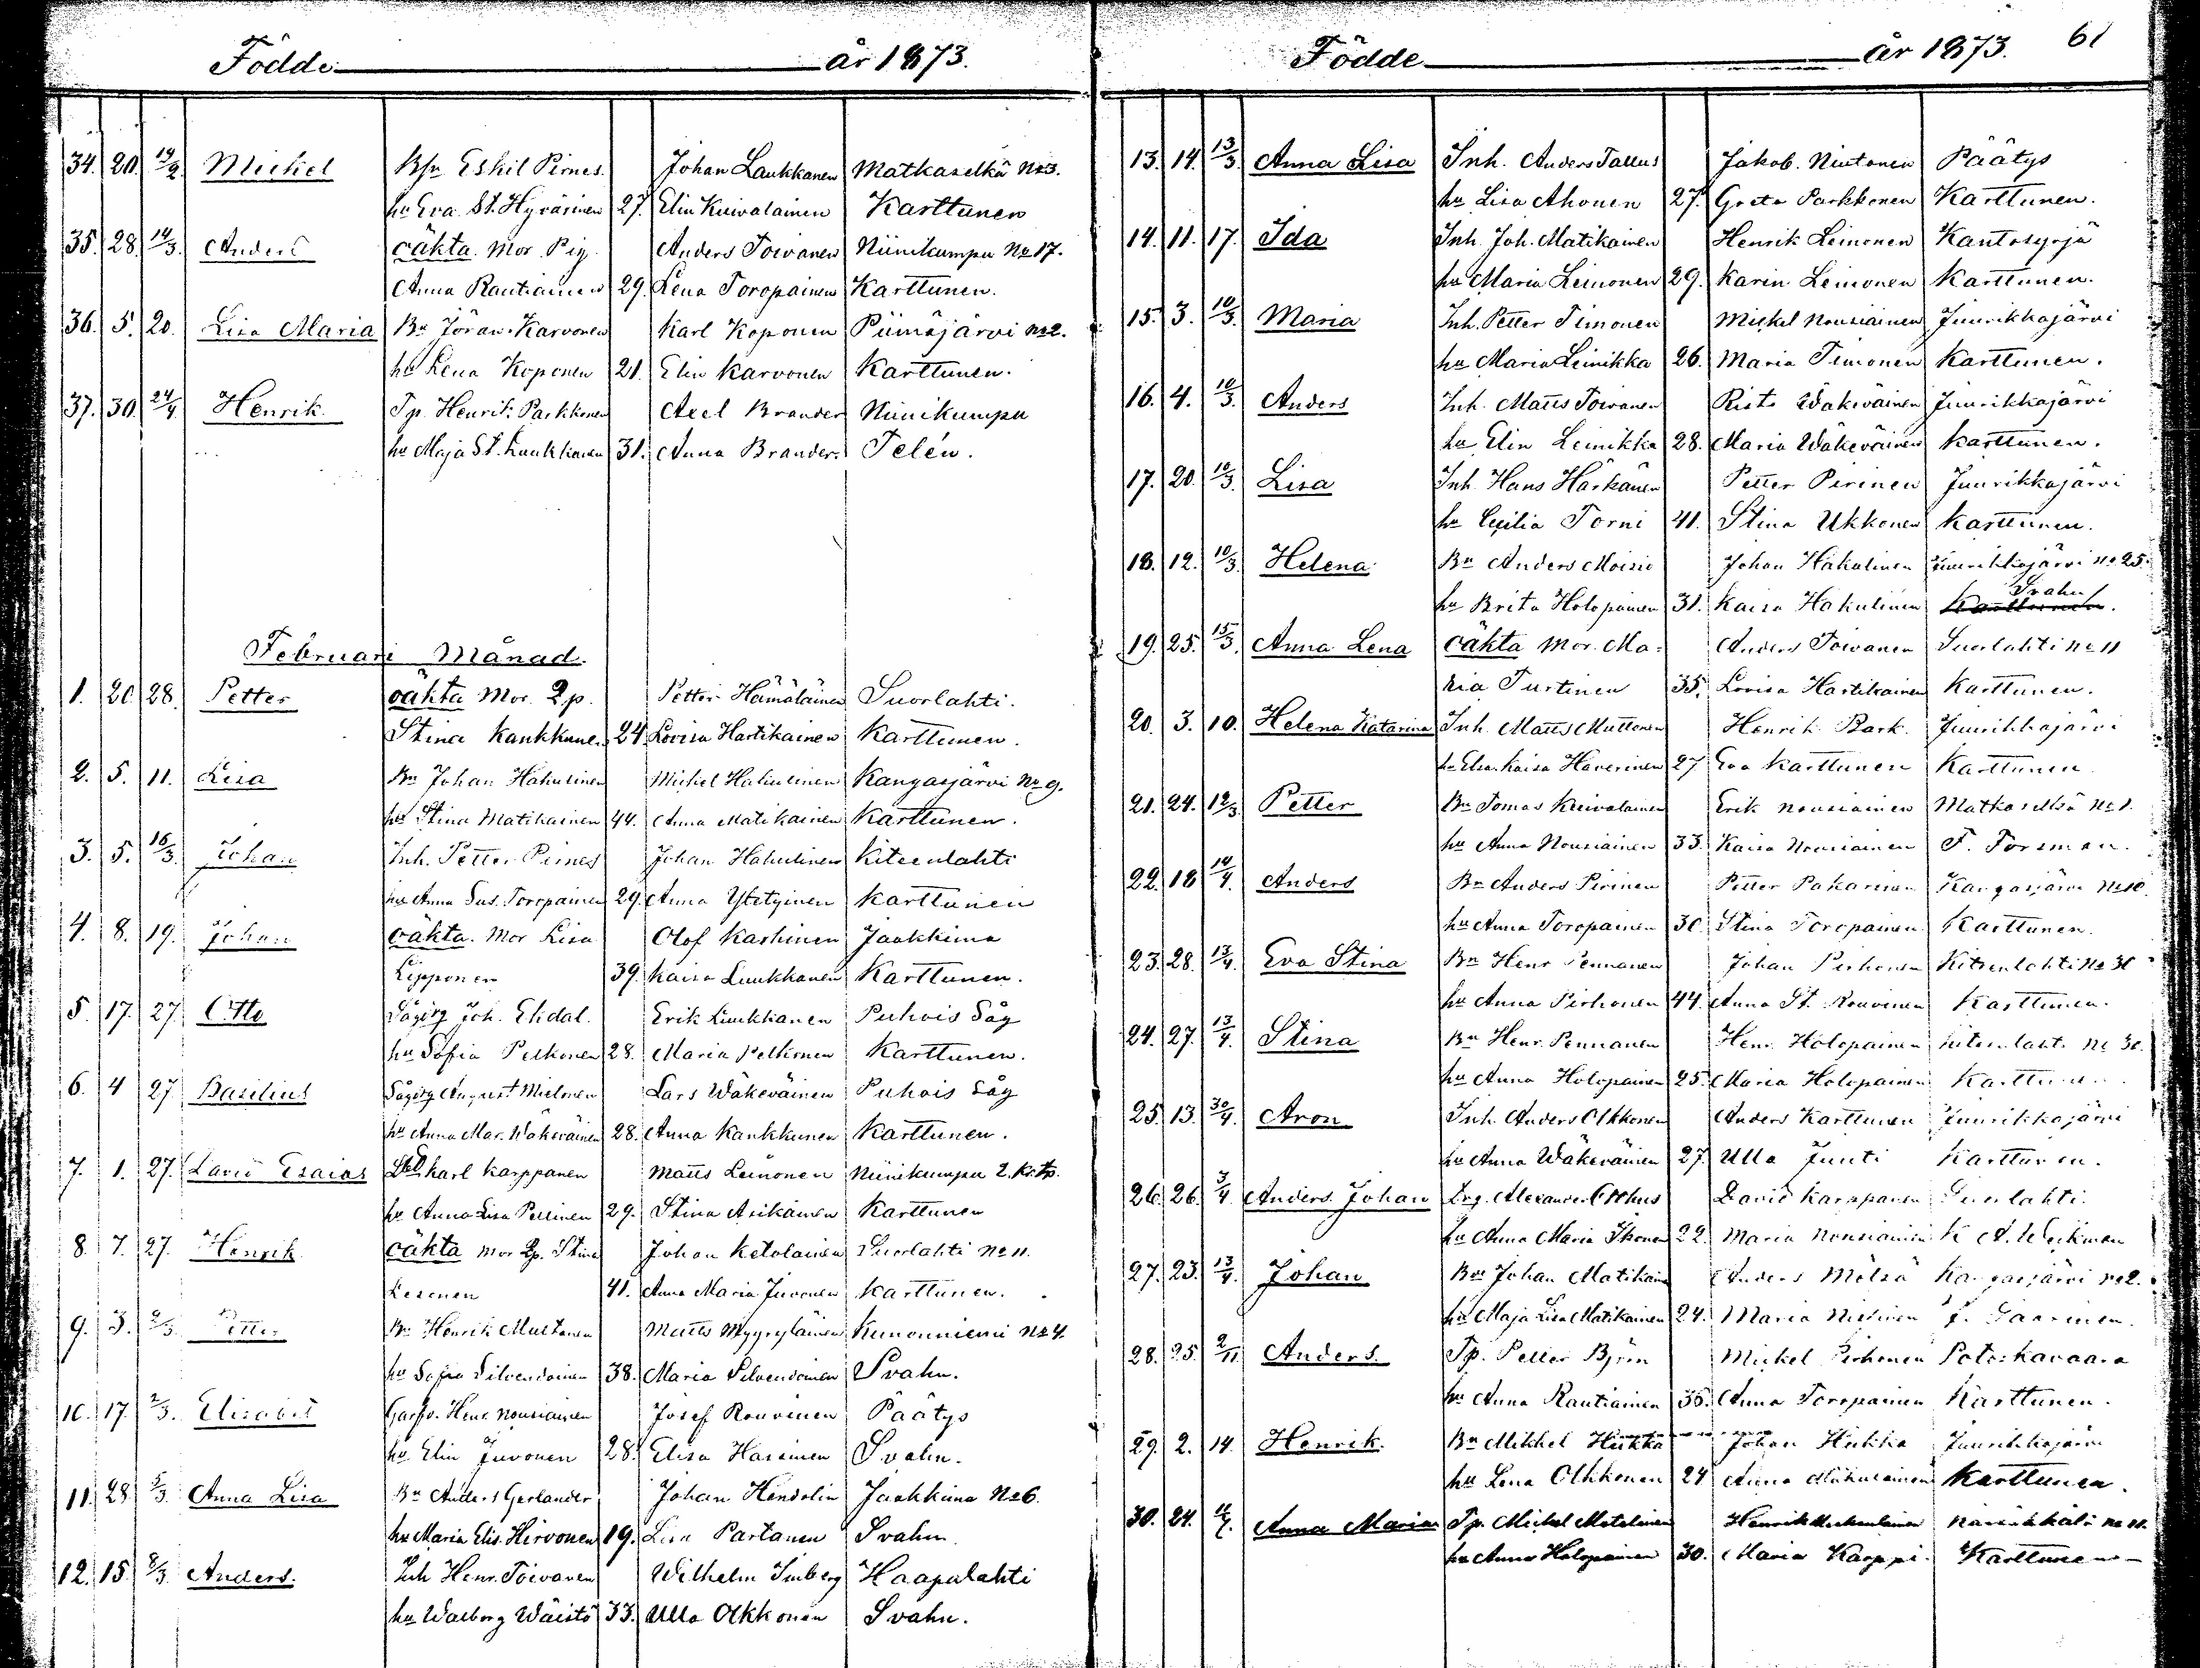 Födde år 1873.
34. 20. 19/2. Mickel Bsn Eskil Pirnes. Johan Laukkanen Matkaselkä No 3.
hu Eva St. Hyvärinen 27. Elin Kuivalainen Karttunen
35. 28. 14/3. Anders oäkta. Mor. Pig. Anders Toivanen Niinikumpu No 17.
Anna Rautiainen 29. Lena Toropainen Karttunen.
36. 5. 20. Lisa Maria Bn Jöran Karvonen Karl Koponen Piimäjärvi No 2.
hu Lena Koponen 21. Elin Karvonen Karttunen.
37. 30. 24/4. Henrik. Tp. Henrik Parkkonen Axel Brander Niinikumpu
hu Maja St. Laukkanen 31. Anna Brander. Telén.
Februari Månad.
1. 20. 28. Petter oäkta Mor. Petter Hämäläinen Suorlahti.
Stina Kaukkunen 24. Lovisa Hartikainen Karttunen.
2. 5. 11. Lisa Bn Johan Hakulinen Mickel Hakulinen Kangasjärvi No 9.
hu Stina Matikainen 44. Anna Matikainen Karttunen.
3. 5. 16/3. Johan Inh. Petter Pirnes Johan Hakulinen Kiteenlahti
hu Anna Sus. Toropainen 29. Anna Karttunen
4. 8. 19. Johan oäkta. Mor Lisa Olof Kashinen Jaakkima
Lipponen 39. Kaisa Luukkanen Karttunen.
5. 17. 27. Otto Joh. Ekdal. Erik Luukkanen Puhois Såg
hu Sofia Pelkonen 28. Maria Pelkonen Karttunen.
6. 4 27 Basilius August Mielonen Lars Wäkeväinen Puhois Såg
hu Anna Mar. Wäkeväinen 28. Anna Kaukkunen Karttunen.
7. 1. 27. David Esaias Karl Karppanen Matts Leinonen Niinikumpu 2.
hu Anna Lisa Pellinen 29. Stina Asikainen Karttunen
8. 7. 27. Henrik oäkta Mor Stina Johan Ketolainen Suorlahti No 11.
Lesonen 41. Anna Maria Juvonen Karttunen.
9. 3. 2/3. Petter Bn Henrik Muttonen Matts Myyryläinen Kunonniemi No 4.
hu Sofia Silvendoinen 38. Maria Silvendoinen Svahn.
10. 17. 2/3. Elisabet Henr. Nousiainen Josef Rouvinen Päätys
hu Elin Juvonen 28. Elisa Hassinen Svahn.
11. 28. 2/3. Anna Lisa Bn Anders Gerlander Johan Hendolin Jaakkima No 6.
hu Maria Elis. Hirvonen 19. Lisa Partanen Svahn.
12. 15. 8/3. Anders. Inh Henr. Toivanen Wilhelm Imberg Haapalahti
hu Walborg Wäistö 33. Ulla Olkkonen Svahn.
Födde år 1873. 61
13. 14. 13/3. Anna Lisa Inh. Anders Tallus Jakob. Niutanen Päätys
hu Lisa Ahonen 27. Greta Parkkonen Karttunen.
14. 11. 17. Ida Inh. Joh. Matikainen Henrik Leinonen Kantosyrjä
hu Maria Leinonen 29. Karin Leinonen Karttunen.
15. 3. 10/3. Maria Inh. Petter Timonen Mickel Nousiainen Juurikkajärvi
hu Maria Leinikka 26. Maria Timonen Karttunen.
16. 4. 10/3. Anders Inh. Matts Toivanen Risto Wäkeväinen Juurikkajärvi
hu Elin Leinikka 28. Maria Wäkeväinen Karttunen.
17. 20. 10/3. Lisa Inh Hans Härkänen Petter Pirinen Juurikkajärvi
hu Cecilia Torni 41. Stina Ukkonen Karttunen.
18. 12. 10/3. Helena Bn Anders Moisio Johan Hakulinen Juurikkajärvi No 25.
hu Brita Holopainen 31. Kaisa Hakulinen Karttunen Svahn.
19. 25. 15/3. Anna Lena oäkta Mor. Ma- Anders Toivanen Suorlahti No 11
ria Turtinen 35. Lovisa Hartikainen Karttunen.
20. 3. 10. Helena Katarina Inh. Matts Muttonen Henrik Bark. Juurikkajärvi
hu Elsa Kaisa Haverinen 27 Eva Karttunen Karttunen
21. 24. 12/3 Petter Bn Tomas Kuivalainen Erik Nousiainen Matkaselkä No 1.
hu Anna Nousiainen 33. Kaisa Nousiainen F. Forsman.
22. 18 14/4. Anders Bn Anders Pirinen Petter Pakarinen Kangasjärvi No 10.
hu Anna Toropainen 30. Stina Toropainen Karttunen.
23. 28. 13/4. Eva Stina Bn Henr Pennanen Johan Pirhonen Kiteenlahti No 30
hu Anna Pirhonen 44. Anna St. Rouvinen Karttunen.
24. 27. 13/4. Stina Bn Henr. Pennanen Henr. Holopainen Kiteenlaht. No 30.
hu Anna Holopainen 25. Maria Holopainen Karttunen
25. 13. 30/4. Aron Inh. Anders Olkkonen Anders Karttunen Juurikkajärvi
hu Anna Wäkeväinen 27. Ulla Junti Karttunen.
26. 26. 3/4 Anders Johan Alexander Orehus David Karppanen Suorlahti.
hu Anna Maria Ikonen 22. Maria Nousiainen K. A. Weikman
27. 23. 13/4. Johan Bn Johan Matikain Anders Mölsä Kangasjärvi No 2.
hu Maja Lisa Matikainen 24. Maria Nissinen
28. 25. 2/11 Anders. Tp. Petter Björn Mickel Pirhonen Potoskavaara
hu Anna Rautiainen 36. Anna Toropainen Karttunen.
29. 2. 14. Henrik. Bn Mikkel Hukka Johan Hukka Juurikkajärvi
hu Lena Olkkonen 24 Anna Karttunen.
30. 24. Anna Maria Tp. Mickel Motolainen Henrik No 11.
hu Anna Holopainen 30. Maria Karppi. Karttunen